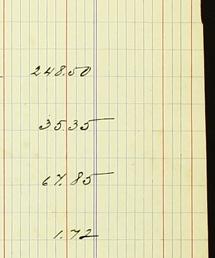 248.50
35.35
67.85
1.72